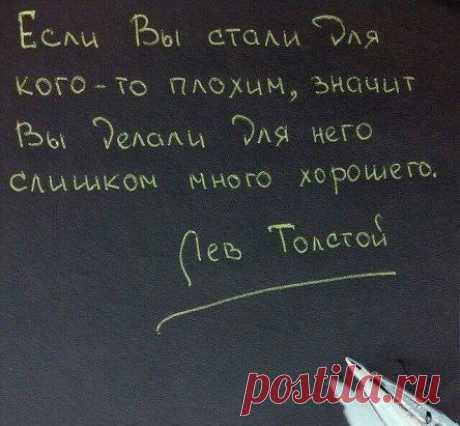 Если Вы стали для
кого-то плохим, значит
Вы делали для него
слишком много хорошего.
Лев Толстой
postila.ru